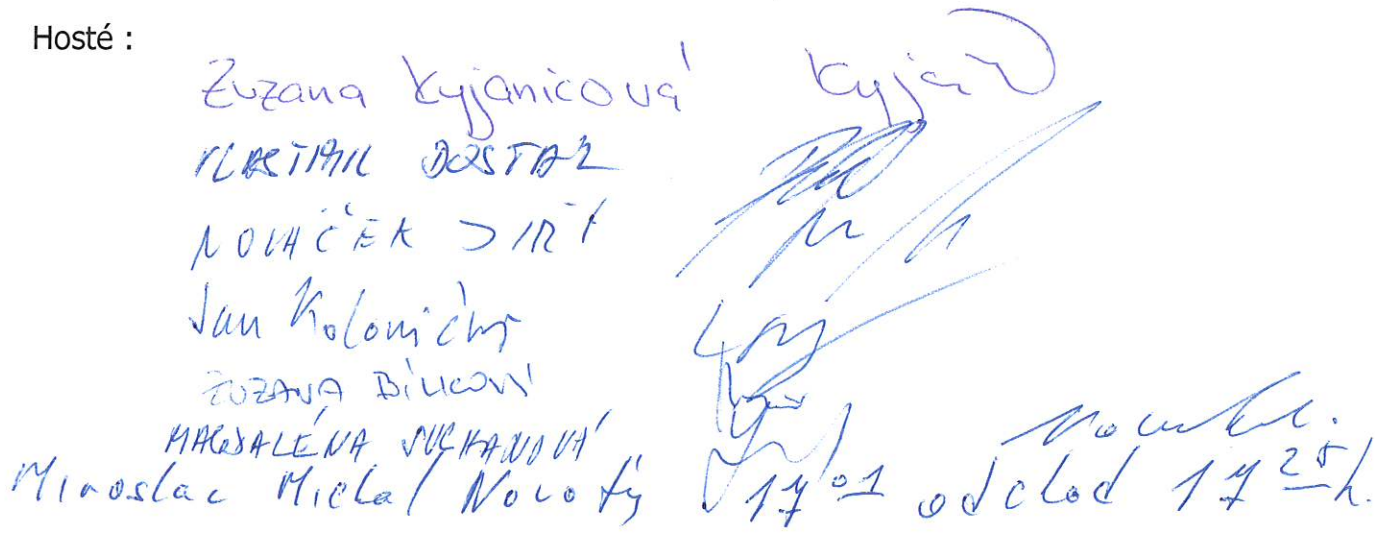 Hosté :
Zuzana Kyjanicová
VLASTIMIL DOSTAL
NOVÁČEK JIŘÍ
Jan Koloničný
ZUZANA BÍLKOVÁ
MAGDALÉNA SUCHANOVÁ
Miroslav Michal Novotný 17 01 odchod 17 25 h.